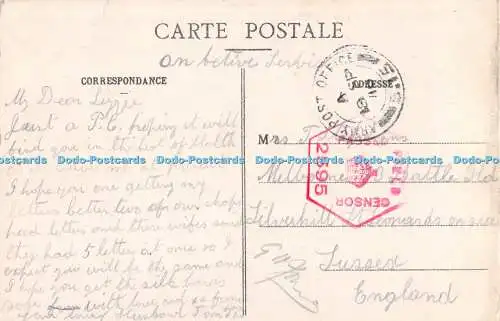 CARTE POSTALE
On Active Service
CORRESPONDANCE
ADRESSE
ARMY POST OFFICE
PASSED
FIELD
CENSOR
2395
My Dear Lizzie
Just a P.C. hoping it will
find you in the best of health
Dodo-Postcards Dodo-Postcards Dodo-Postcards Dodo-Postcards Dodo-Postcards Dodo-Postcards
I hope you are getting my
letters better two of our chaps
had letter and there wifes said
they had 5 letter at once so I
expect you will be the same and
I hope you get the silk
with love
from your loving Husband Tom
Mrs T
Melbourne Battle Rd
Silverhill St Leonards on sea
Sussex
England